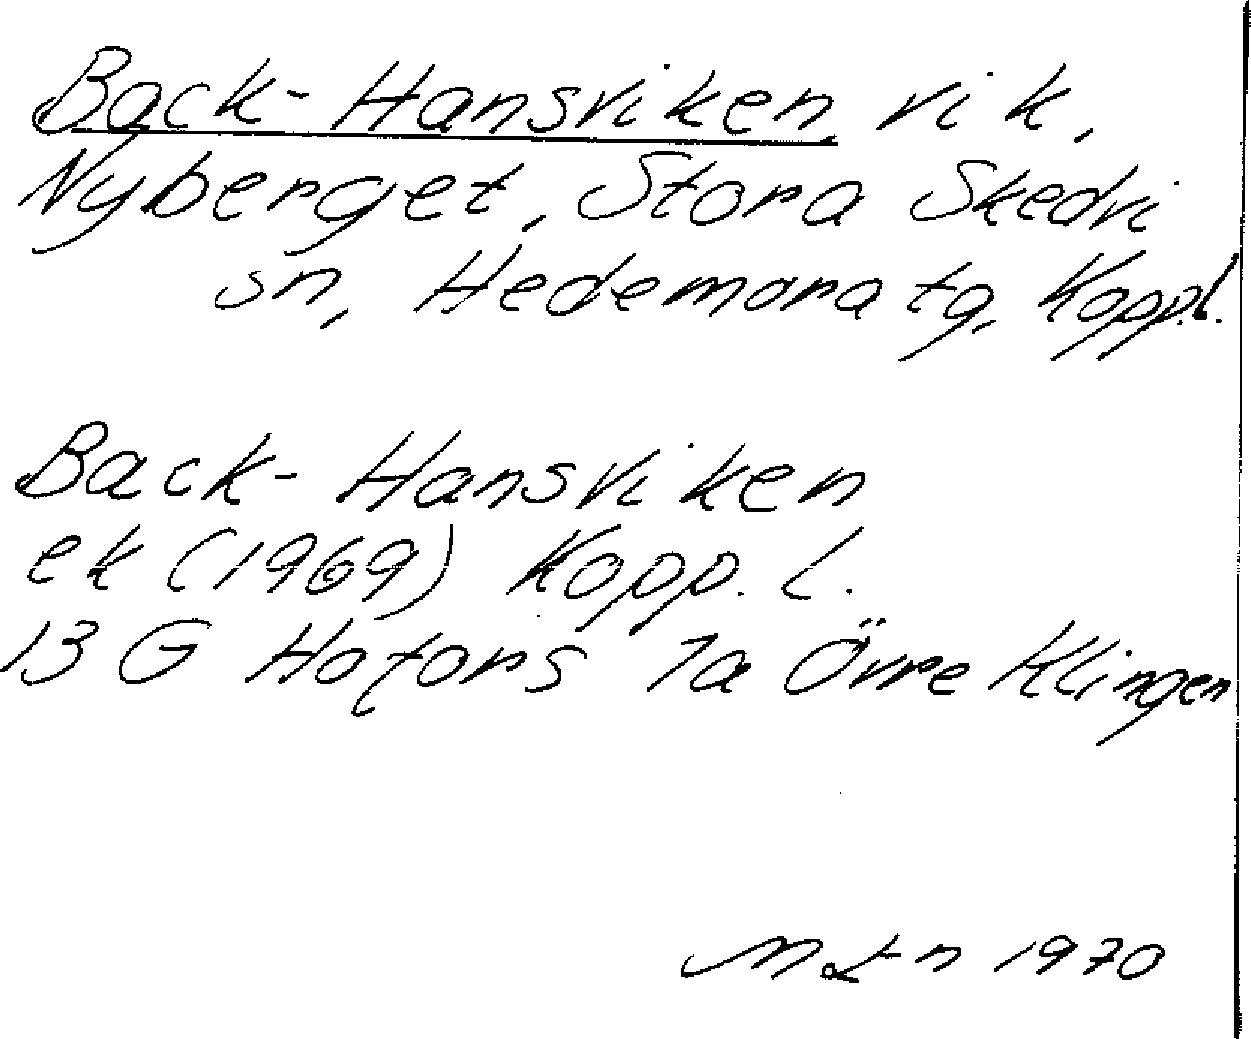 Back-Hansviken vik,
Nyberget, Stora Skedvi
sn, Hedemora tg, Kopp.l.
Back-Hansviken
ek (1969) Kopp. l.
13 G Hofors 7a Övre Klingen
1970